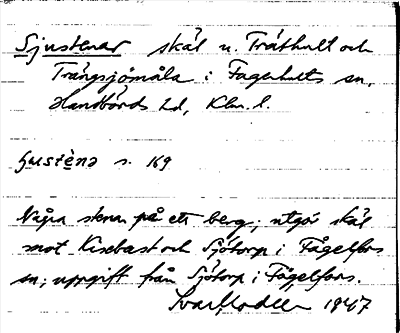 Sjustenar skäl u. Träthult och
Trångsjömåla i Fagerhults sn,
Handbörds hd, Klm. l.
Sjustèna s. 169
Några stenar på ett berg; utgör skäl
mot Kisebast och Sjötorp i Fågelfors
sn; uppgift från Sjötorp i Fågelfors.
1947